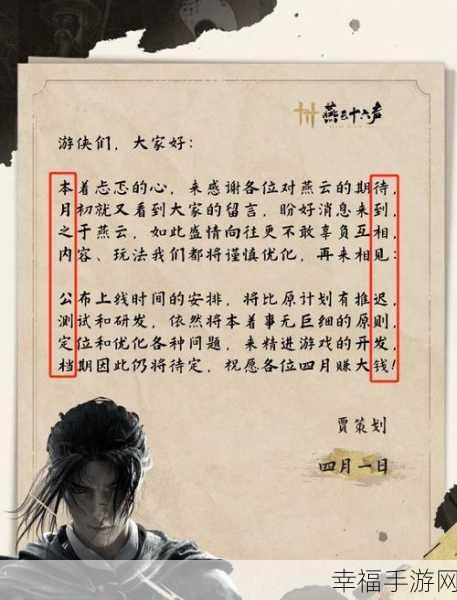 燕云十六声
游侠们，大家好：
本着忐忑的心，来感谢各位对燕云的期待，
月初就又看到大家的留言，盼好消息来到，
之于燕云，如此盛情向往更不敢辜负互相，
内容、玩法我们都将谨慎优化，再来相见：
公布上线时间的安排，将比原计划有推迟，
测试和研发，依然将本着事无巨细的原则，
定位和优化各种问题，来精进游戏的开发，
档期因此仍将待定，祝愿各位四月赚大钱！
贾策划
四月一日
幸福手游网